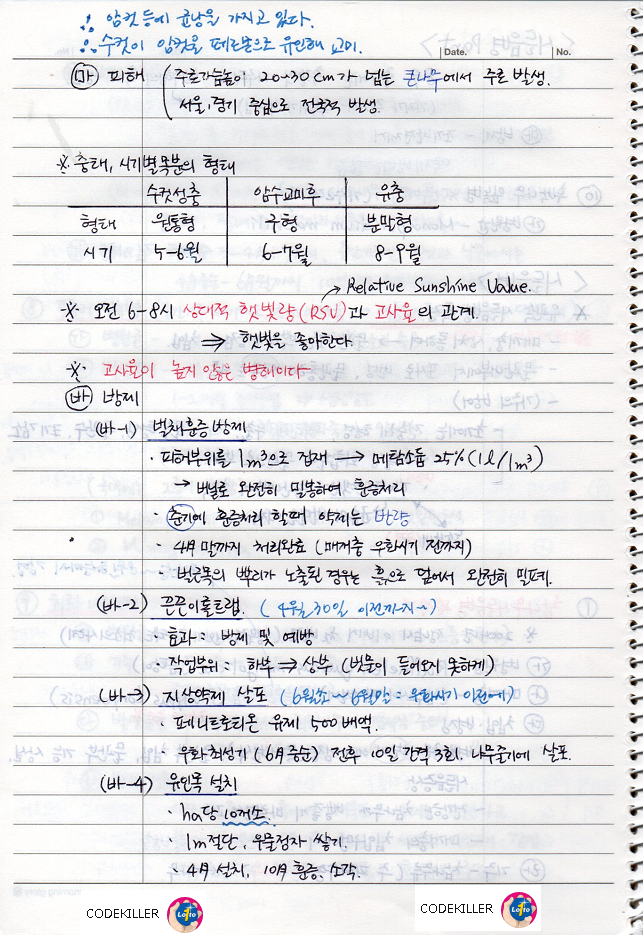 ∴ 암컷 등에 균낭을 가지고 있다.
∴ 수컷이 암컷을 페르몬으로 유인해 교미.
Date. No.
㉲ 피해 ( 주로 가슴높이 20~30cm가 넘는 큰나무에서 주로 발생.
서울, 경기 중심으로 전국적 발생.
※ 충태, 시기별 목분의 형태
수컷성충 암수교미후 유충
형태 원통형 구형 분말형
시기 5-6월 6-7월 8-9월
→ Relative Sunshine Value.
※ 오전 6-8시 상대적 햇빛량(RSV)과 고사율의 관계
⇒ 햇빛을 좋아한다.
※ 고사율이 높지 않은 병해이다
㉳ 방제
(바-1) 벌채훈증방제
· 피해부위를 1m³으로 집재 → 메탐소듐 25% (1ℓ/1m³)
→ 비닐로 완전히 밀봉하여 훈증처리
· 춘기에 훈증처리 할때 약제는 반량
· 4월 말까지 처리완료 (매개충 우화시기 전까지)
· 벌근목의 뿌리가 노출된 경우는 흙으로 덮어서 완전히 밀폐.
(바-2) 끈끈이롤트랩. (4월 30일 이전까지~)
· 효과 : 방제 및 예방
· 작업부위 : 하부 ⇒ 상부 (빗물이 들어오지 못하게)
(바-3) 지상약제 살포 (6월초~6월말 : 우화시기 이전에)
· 페니트로티온 유제 500배액.
· 우화최성기 (6月중순) 전후 10일 간격 3회. 나무줄기에 살포.
(바-4) 유인목 설치
· ha당 10개소.
· 1m절단, 우물정자 쌓기.
· 4月 설치, 10月 훈증, 소각.
CODEKILLER Lotto CODEKILLER Lotto